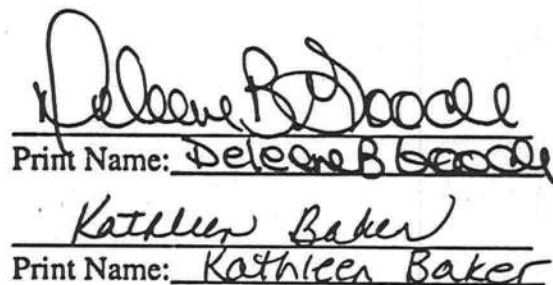 Deleene B Goode
Print Name: Deleene B Goode
Kathleen Baker
Print Name: Kathleen Baker